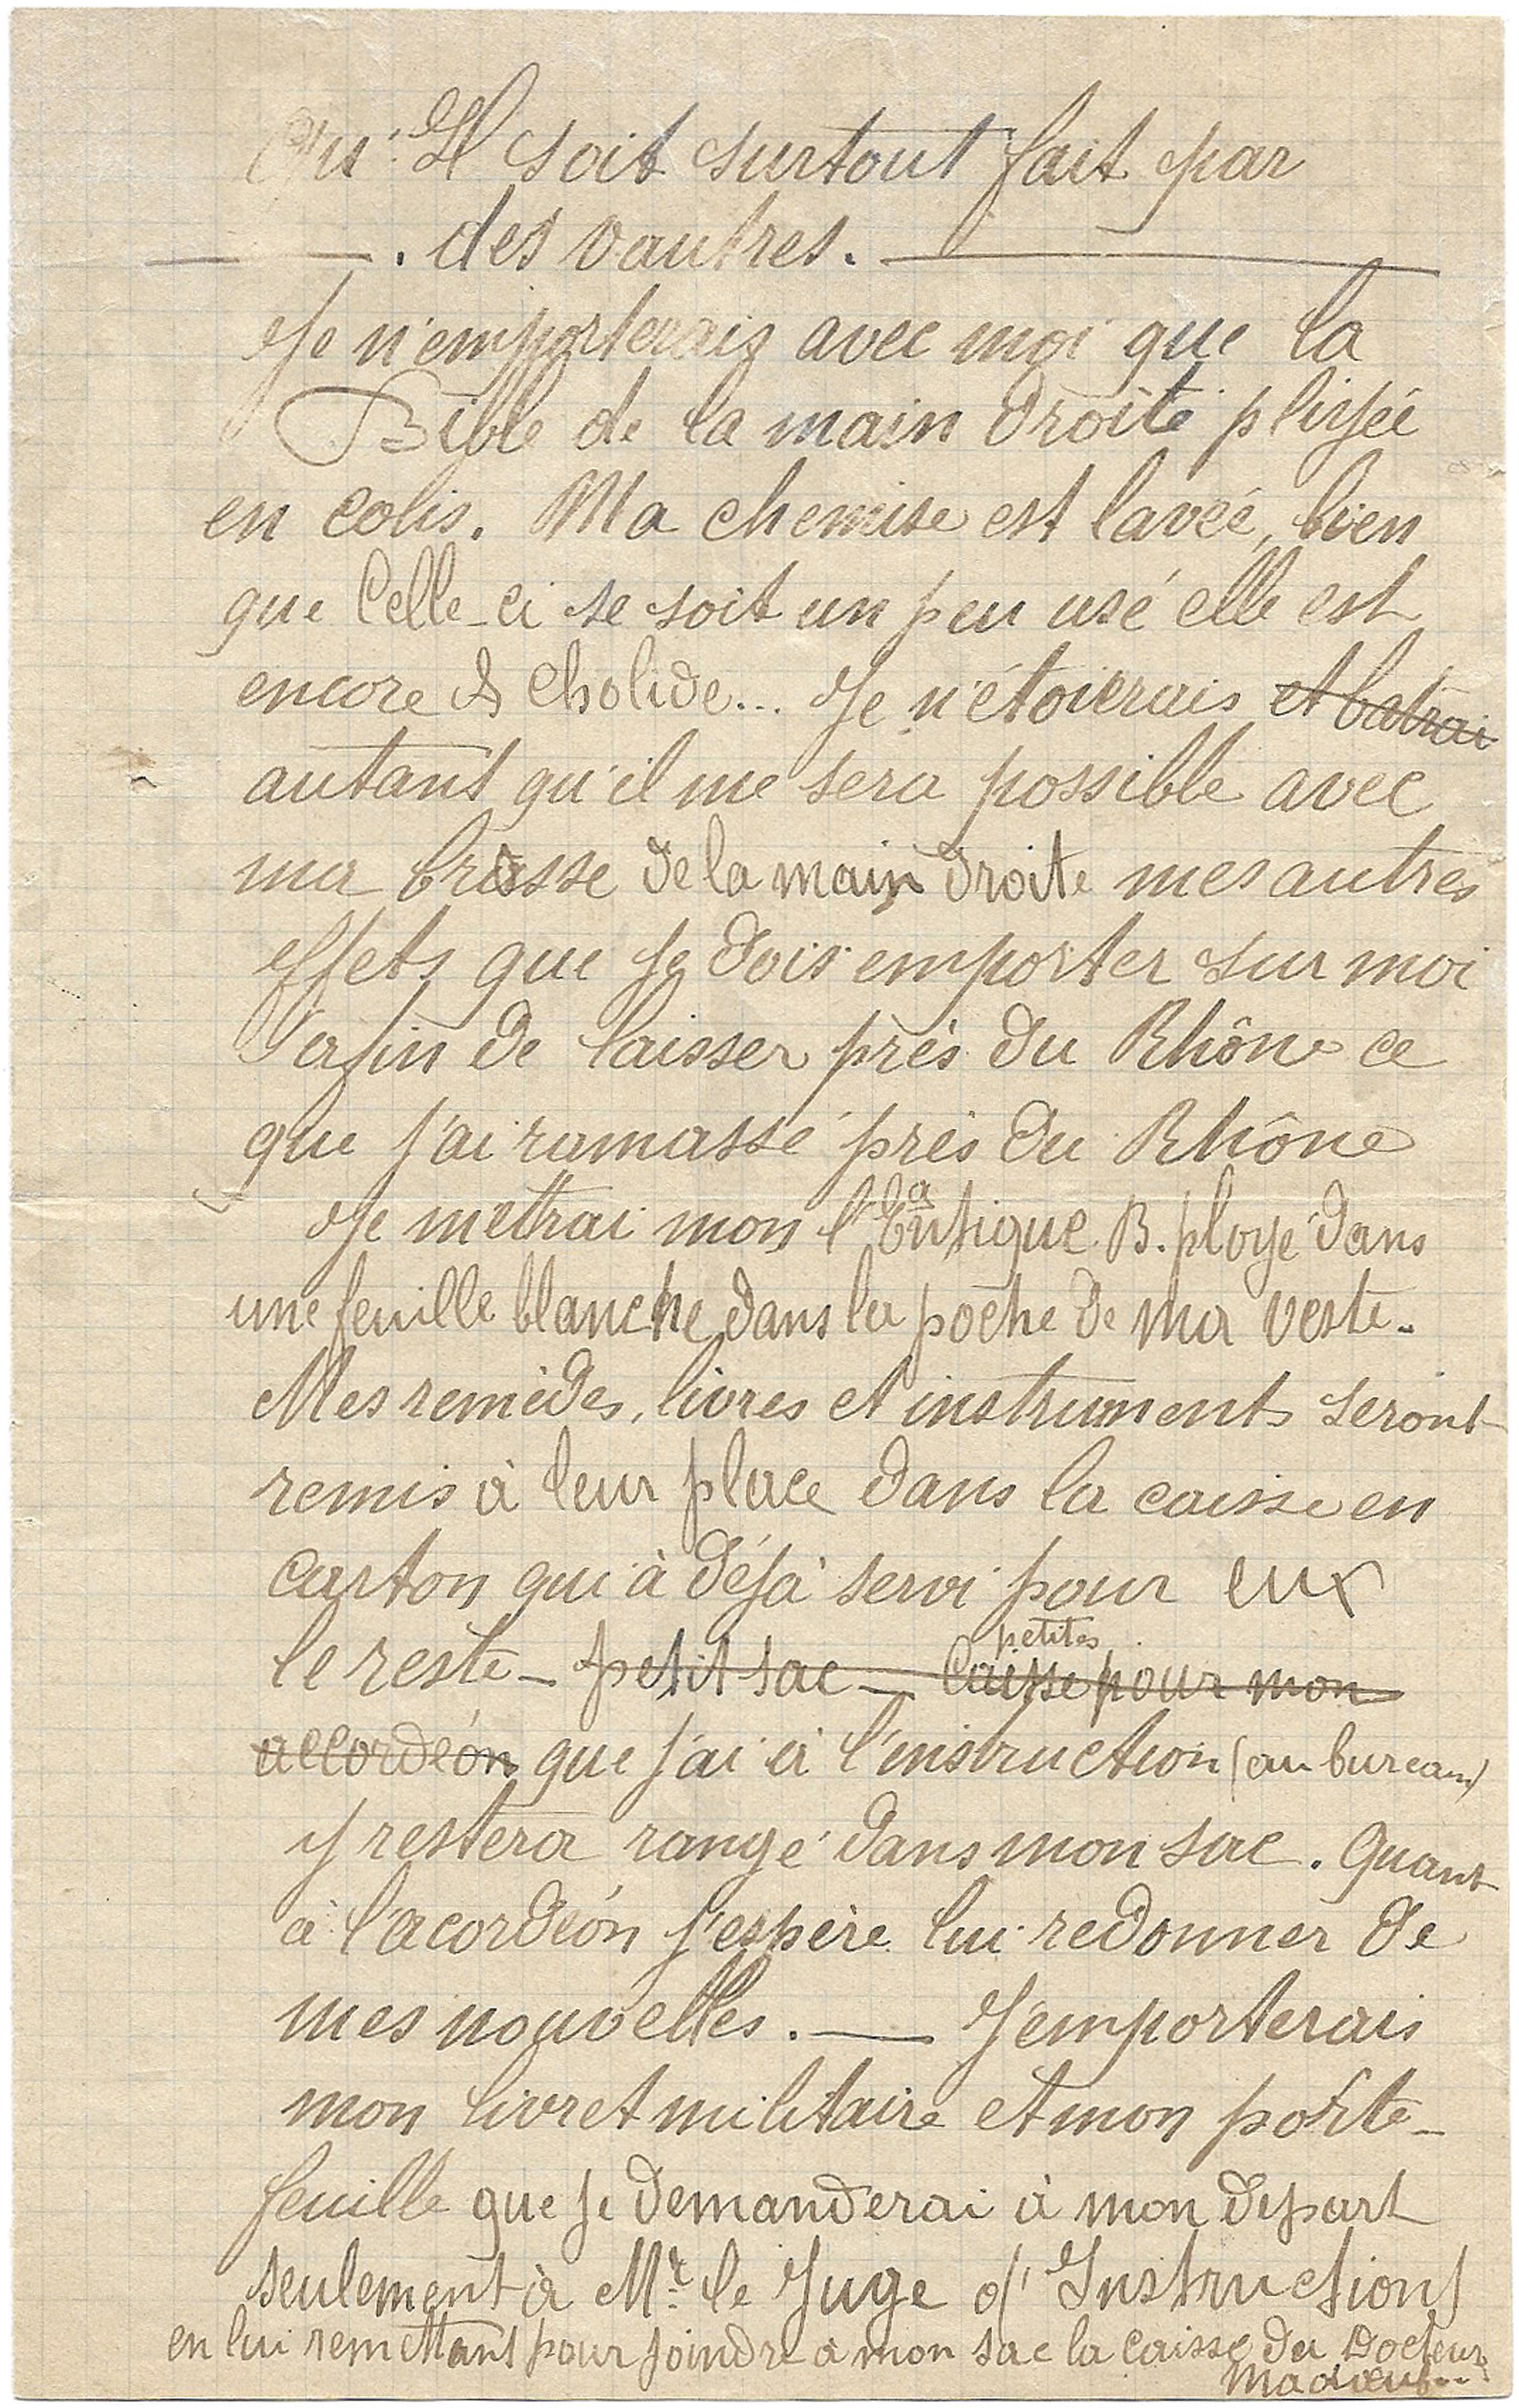 Qu'Il soit surtout fait par
. des vautres.
Je n'emporterais avec moi que la
Bible de la main droite pliyée
en colis. Ma chemise est lavéé, bien
que Celle-ci se soit un peu usé elle est
encore cholide... Je n'étoierais et batrai
autant qu'il me sera possible avec
ma brosse de la main droite mes autres
effets que je dois emporter sur moi
d'afin de laisser près du Rhône ce
que j'ai ramassé près du Rhône
Je metrai mon B. ployé dans
une feuille blanche dans la poche de ma veste.
Mes remèdes, livres et instruments seront
remis à leur place dans la caisse en
carton qui à déjà servi pour eux
le reste - petit sac - Caisse petites pour mon
accordéon que j'ai à l'instruction (au bureau)
y restera rangé dans mon sac. Quant
à l'acordéon j'espère lui redonner de
mes nouvelles. — J'emporterais
mon livret militaire et mon porte-
feuille que je demanderai à mon départ
seulement à Mr. le Juge d'Instruction
en lui remettant pour joindre à mon sac la caisse du Docteur
Madeuf..